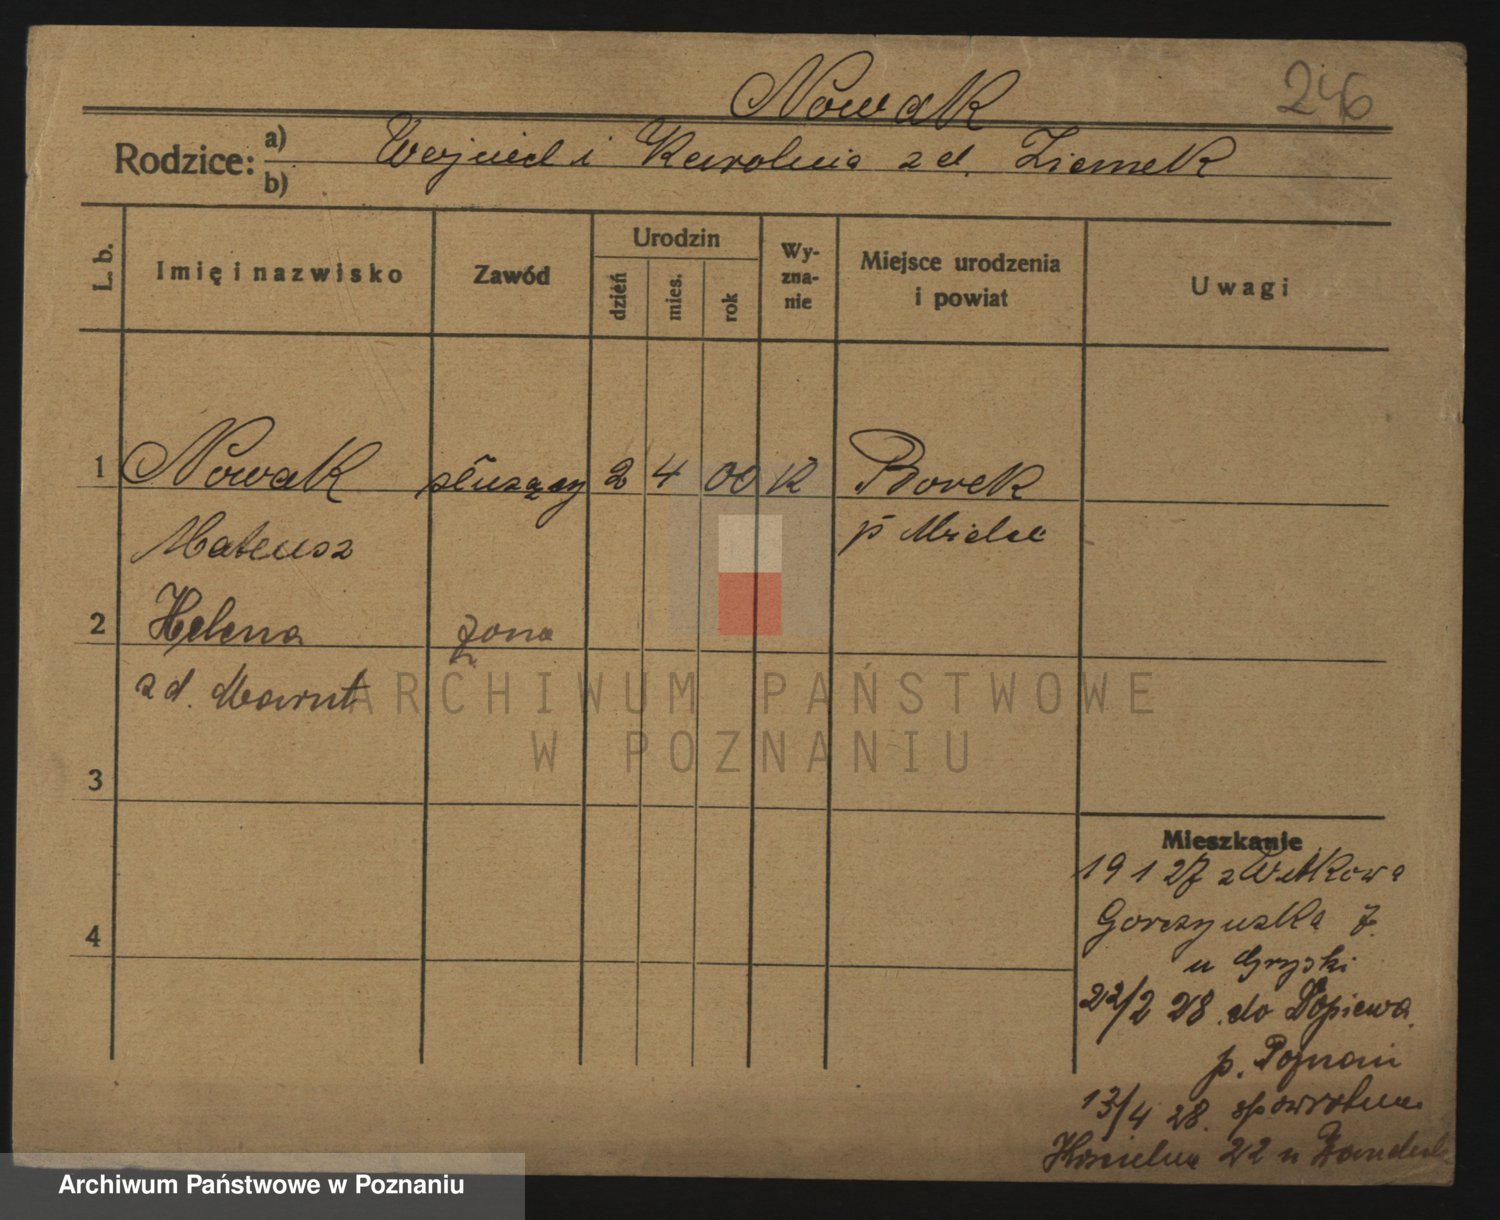 Nowak
246
Rodzice: a) b)
Wojciech i Karolina z d. Ziemek
L. b.
Imię i nazwisko
Zawód
Urodzin
dzień
mies.
rok
Wy-
zna-
nie
Miejsce urodzenia
i powiat
Uwagi
1 Nowak służący 2 4 00 K Borek
Mateusz p Mielec
2 Helena żona
z d. Marut
3
4
Mieszkanie
19 1 27 z Witkowa
Gorczyczka 7
u
22/2 28. do Dopiewa
p. Poznań
13/4 28. spowrotem
Kościelna 22 u
ARCHIWUM PAŃSTWOWE
W POZNANIU
Archiwum Państwowe w Poznaniu